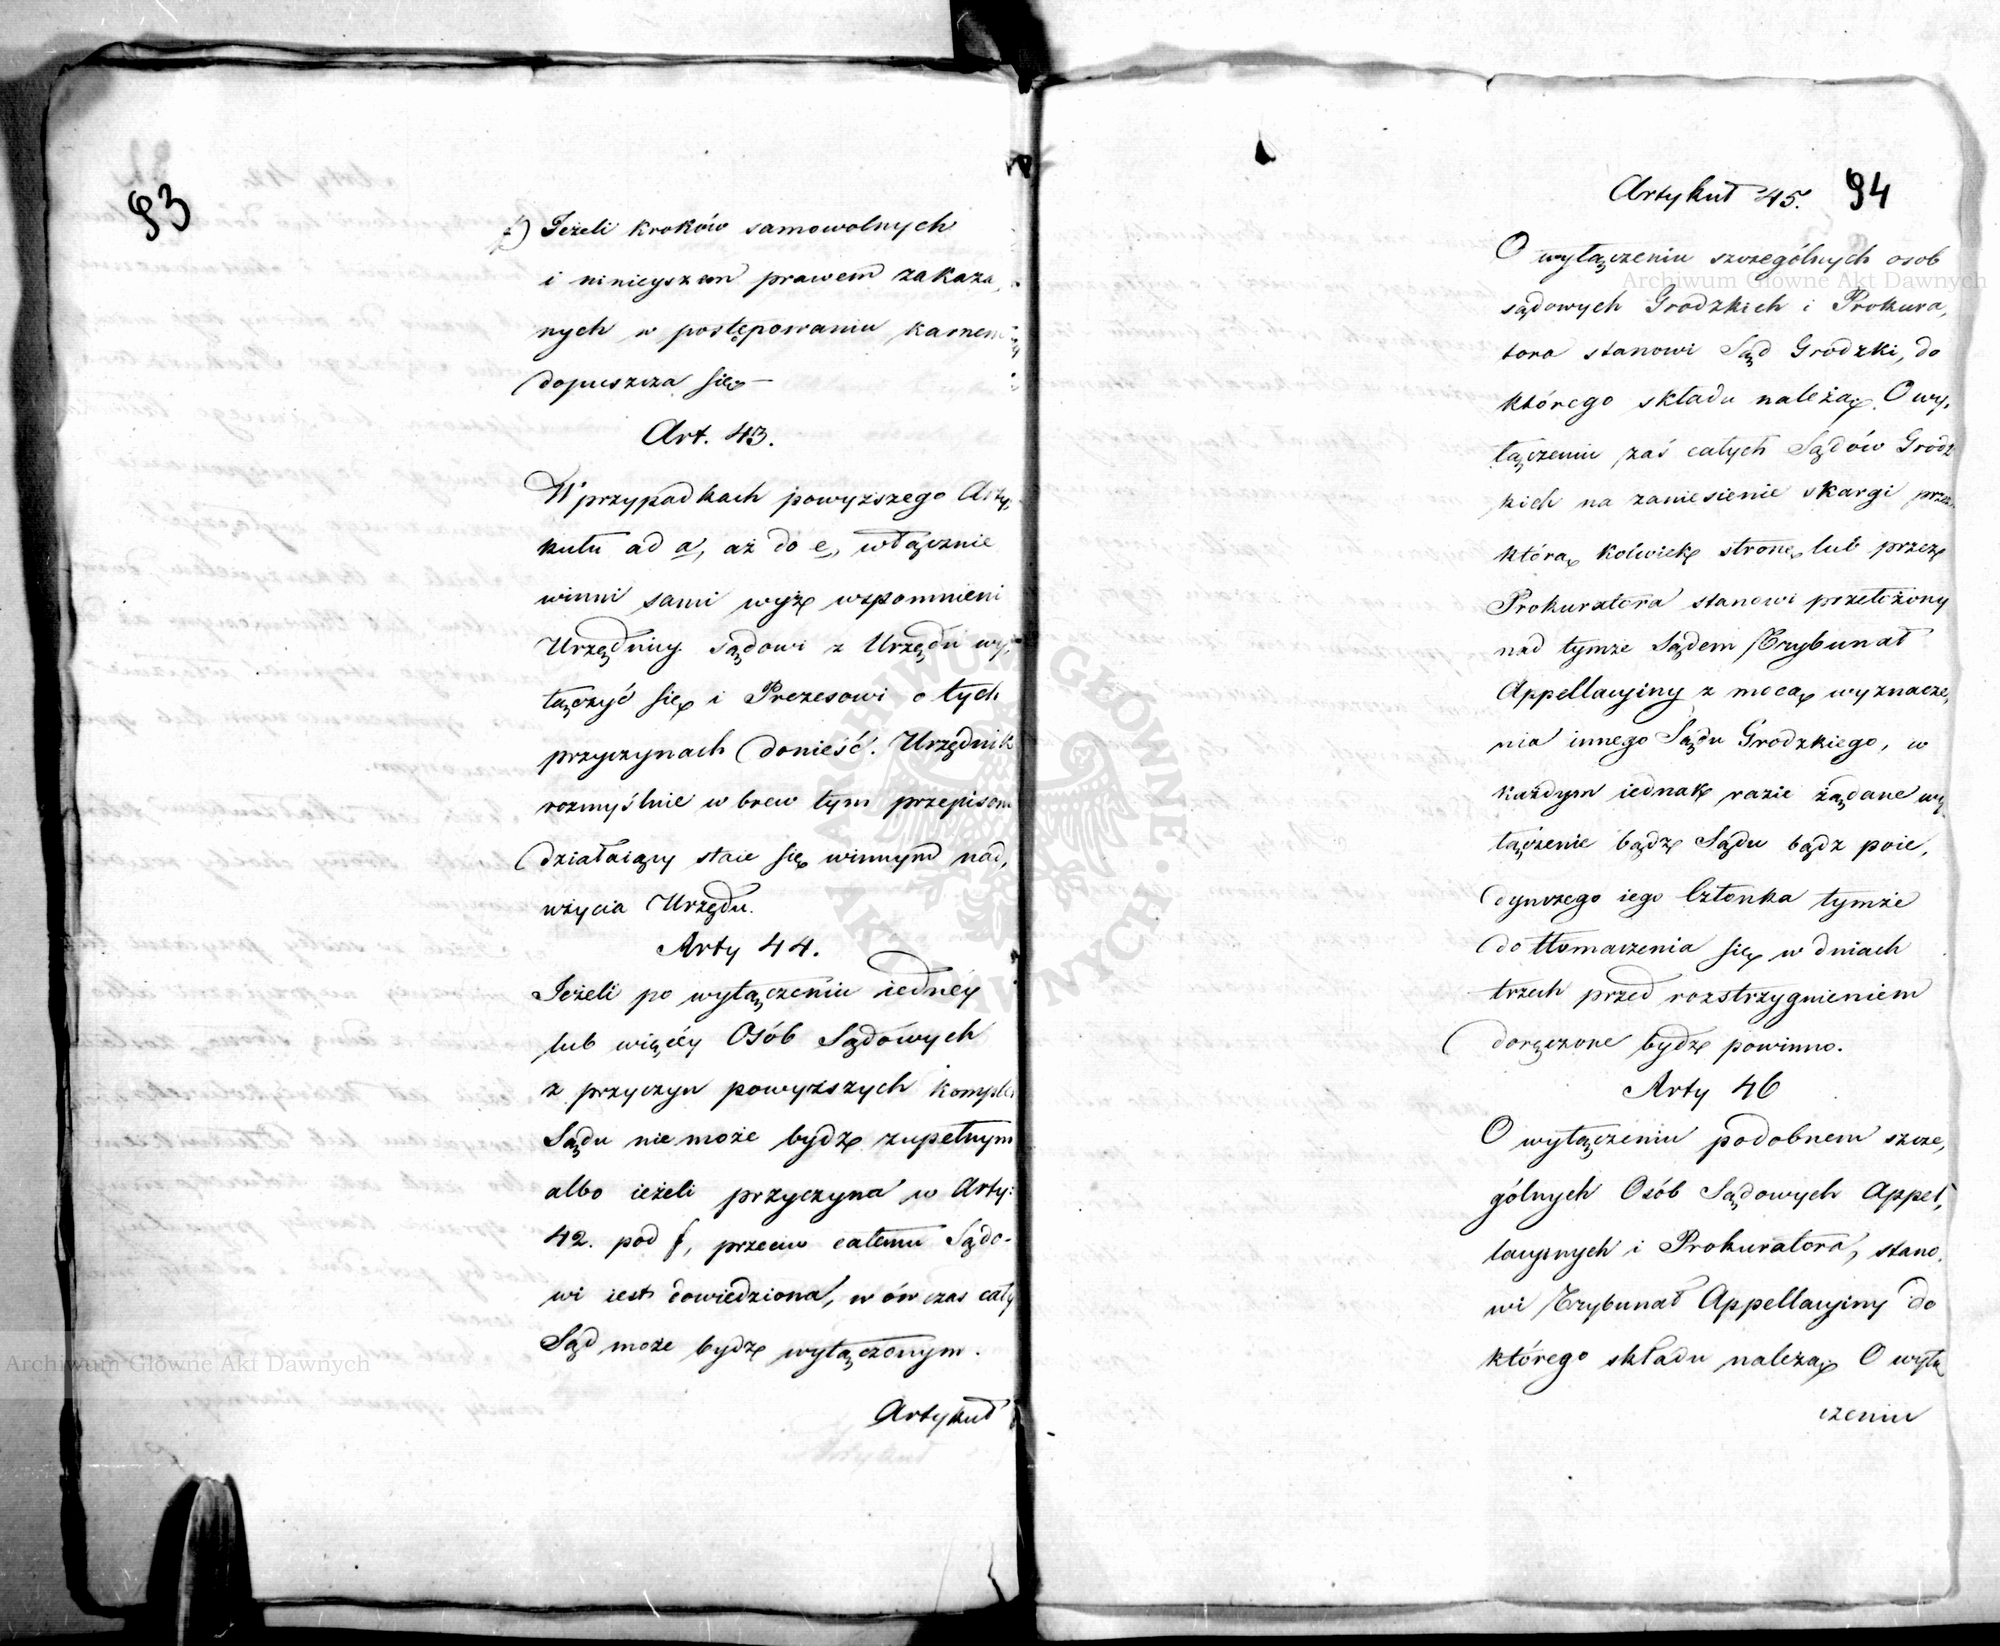 93
f) Jeżeli kroków samowolnych
i ninieyszem prawem zakaza,
nych w postępowaniu karnem
dopuszcza się —
Art. 43.
W przypadkach powyższego Arty,
kułu ad a, aż do e, włącznie
winni sami wyż wspomnieni
Urzędnicy sądowi z Urzędu wy,
łączyć się i Prezesowi o tych
przyczynach donieść. Urzędnik
rozmyślnie w brew tym przepisom
działaiący staie się winnym nad,
użycia Urzędu.
Arty 44.
Jeżeli po wyłączeniu iednéy
lub więcéy Osób Sądowych
z przyczyn powyższych komplet
Sądu nie może bydź zupełnym
albo ieżeli przyczyna w Arty:
42. pod f, przeciw całemu Sądo-
wi iest dowiedziona, w ów czas cały
Sąd może bydź wyłączonym.
Artykuł
94
Artykuł 45.
O wyłączeniu szczególnych osob
sądowych Grodzkich i Prokura,
tora stanowi Sąd Grodzki, do
którego składu należą. O wy,
łączeniu zaś całych Sądów Grodz
kich na zaniesienie skargi przez
którą kolwiek stronę lub przez
Prokuratora stanowi przełożony
nad tymże Sądem Trybunał
Appellacyiny z mocą wyznacze,
nia innego Sądu Grodzkiego, w
każdym iednak razie żądane wy
łączenie bądź Sądu bądz poie,
dynczego iego Członka tymże
do tłomaczenia się w dniach
trzech przed rozstrzygnieniem
doręczone bydź powinno.
Arty 46
O wyłączeniu podobnem szcze,
gólnych Osób Sądowych Appel,
lacyinych i Prokuratora, stano,
wi Trybunał Appellacyiny do
którego składu należą. O wyłą
czeniu
Archiwum Główne Akt Dawnych
Archiwum Główne Akt Dawnych
ARCHIWUM GŁÓWNE AKT DAWNYCH